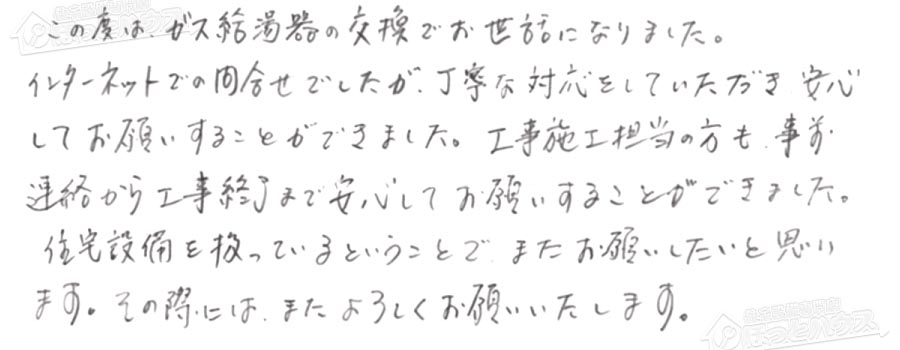 この度は、ガス給湯器の交換でお世話になりました。
インターネットでの問合せでしたが、丁寧な対応をしていただき 安心
してお願いすることができました。工事施工担当の方も、事前
連絡から工事終了まで安心してお願いすることができました。
住宅設備を扱っているということで、またお願いしたいと思い
ます。その際には、またよろしくお願いいたします。
ほっとハウス